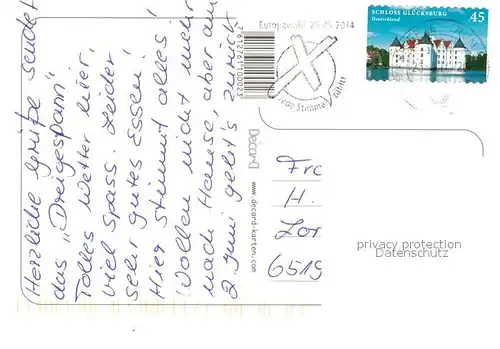 Herzliche Grüße sendet
das „Dreigespann".
Tolles Wetter hier,
viel Spass. Leider
sehr gutes Essen!
Hier stimmt alles!
Wollen nicht mehr
nach Hause, aber am
2. Juni geht's zurück!
Europawahl 25.05.2014
Jede Stimme zählt!
SCHLOSS GLÜCKSBURG
Deutschland
45
Decard
www.decard-karten.com
H.
6519
privacy protection
Datenschutz